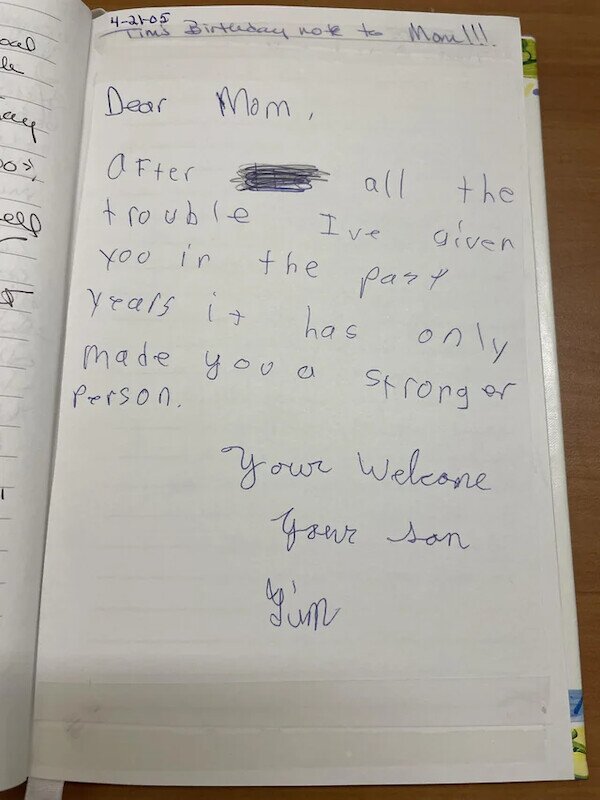 4-21-05
Tim's Birthday note to Mom!!!
Dear Mom,
After all the
trouble I've given
you in the past
years it has only
made you a stronger
person.
Your Welcome
Your son
Tim